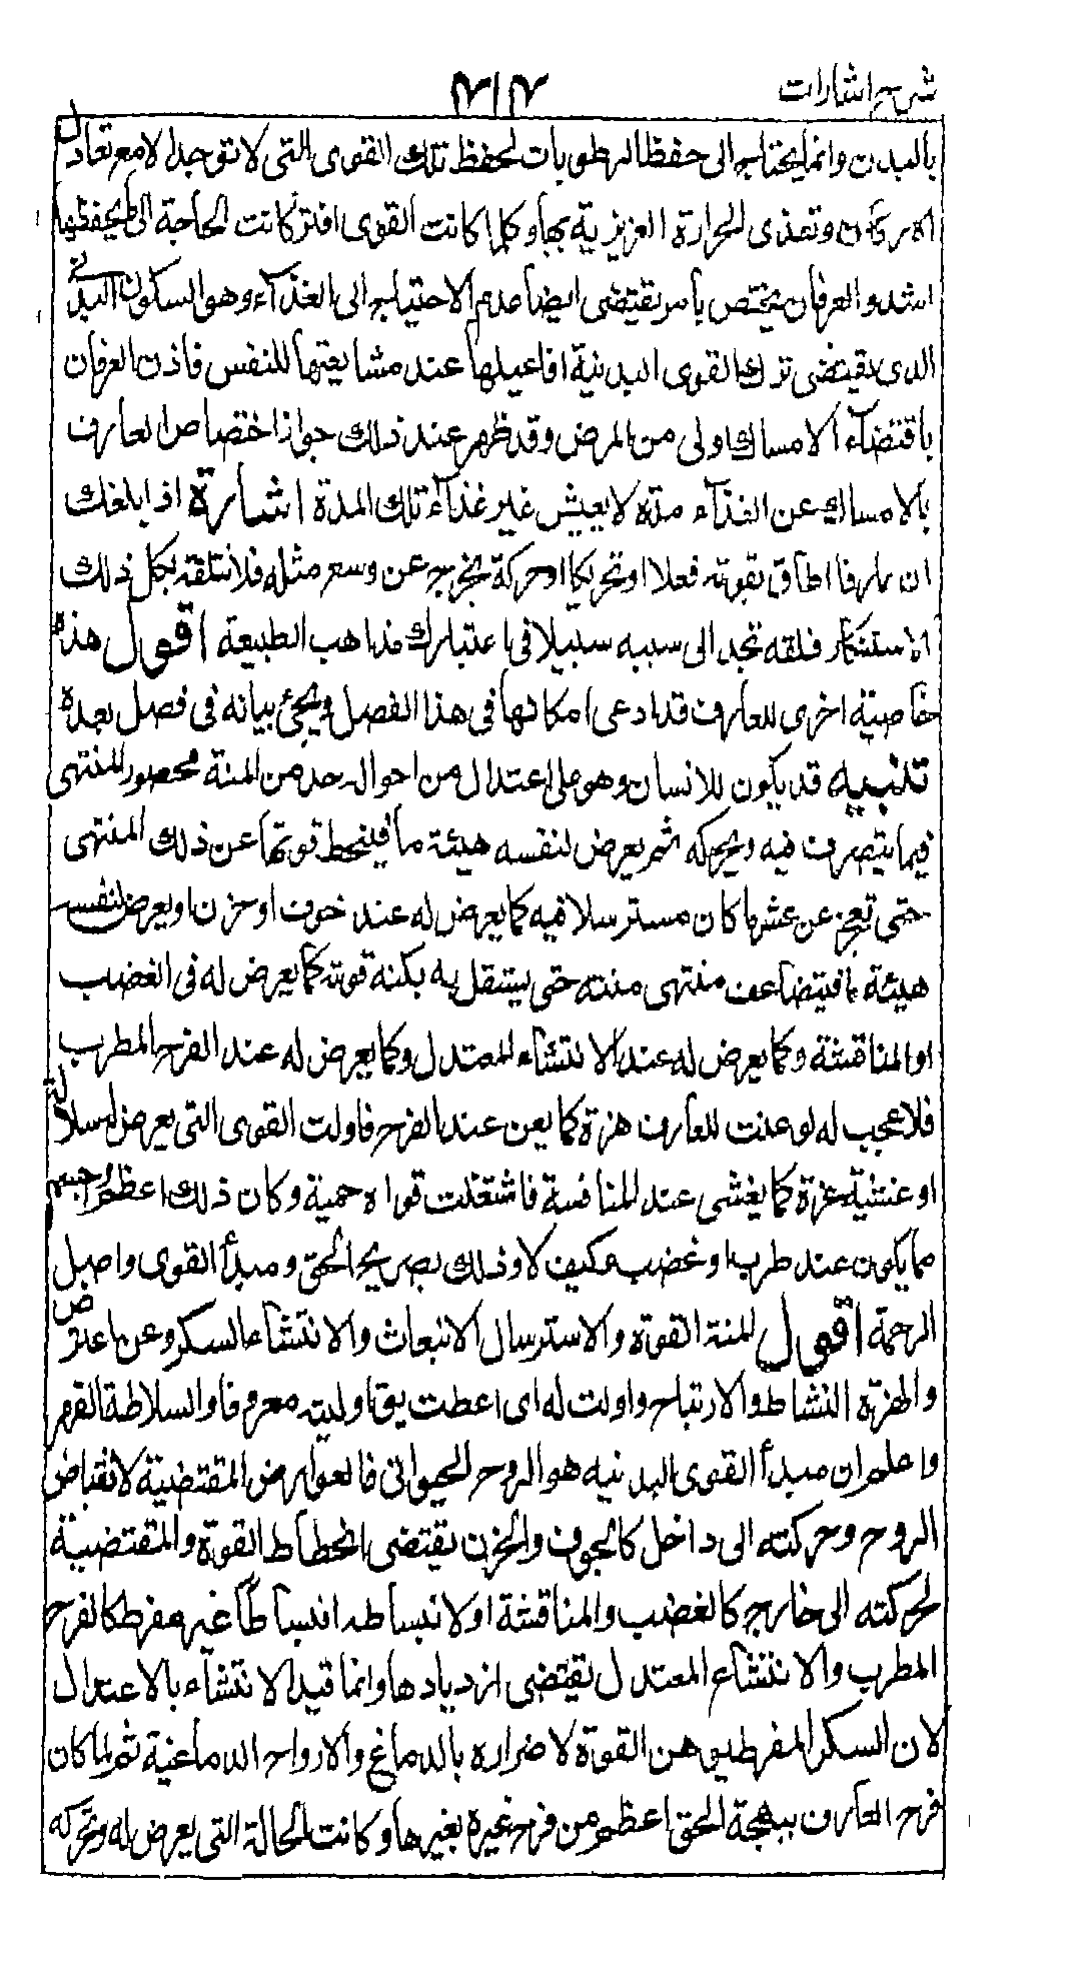 شرح اشارات
بالبدن وانما يحتاج الى حفظ الرطوبات لحفظ تلك القوى التى لا توجد الا مع تعادل
الاركان وتغذى الحرارة الغريزية بها وكلما كانت القوى افتر كانت الحاجة الى ما يحفظها
اشد والعرفان يختص بامر يقتضى ايضا عدم الاحتياج الى الغذاء وهو السكون البدنى
الذى يقتضى ترك القوى البدنية افاعيلها عند مشايعتها للنفس فاذن العرفان
باقتضاء الامساك اولى من المرض وقد ظهر عند ذلك جواز اختصاص العارف
بالامساك عن الغذاء مدة لا يعيش غيره غذاء تلك المدة اشارة اذا بلغك
ان عارفا اطاق بقوته فعلا او تحريكا او حركة يخرج عن وسع مثله فلا تتلقه بكل ذلك
الاستنكار فلقد تجد الى سببه سبيلا فى اعتبارك مذاهب الطبيعة اقول هذه
خاصية اخرى للعارف قد ادعى امكانها فى هذا الفصل ويجئ بيانه فى فصل بعده
تنبيه قد يكون للانسان وهو على اعتدال من احواله حد من المنة محصور المنتهى
فيما يتصرف فيه ويحركه ثم يعرض لنفسه هيئة ما فينحط قوتها عن ذلك المنتهى
حتى تعجز عن عشر ما كان مسترسلا فيه كما يعرض له عند خوف او حزن او يعرض لنفسه
هيئة ما فيتضاعف منتهى منته حتى يستقل به بكنه قوته كما يعرض له فى الغضب
او المناقشة وكما يعرض له عند الانتشاء المعتدل وكما يعرض له عند الفرح المطرب
فلا عجب له لو عنت للعارف هزة كما يعن عند الفرح فاولت القوى التى يعرض له سلاطة
او غشيته عزة كما يغشى عند المنافسة فاشتغلت قواه حمية وكان ذلك اعظم واجسم
مما يكون عند طرب او غضب وكيف لا وذلك بصريح الحق ومبدأ القوى واصل
الرحمة اقول المنة القوة والاسترسال الانبعاث والانتشاء السكر وعن اعترض
والهزة النشاط والارتياح واولت له اى اعطت يق اوليته معروفا والسلاطة القهر
واعلم ان مبدأ القوى البدنيه هو الروح الحيوانى فالعوارض المقتضية لانقباض
الروح وحركته الى داخل كالخوف والحزن يقتضى انحطاط القوة والمقتضية
لحركته الى خارج كالغضب والمناقشة او لانبساطه انبساطا غير مفرط كالفرح
المطرب والانتشاء المعتدل يقتضى ازديادها وانما قيد الانتشاء بالاعتدال
لان السكر المفرط يوهن القوة لاضراره بالدماغ والارواح الدماغية ثم لما كان
فرح العارف ببهجة الحق اعظم من فرح غيره بغيرها وكانت الحالة التى يعرض له وتحركه